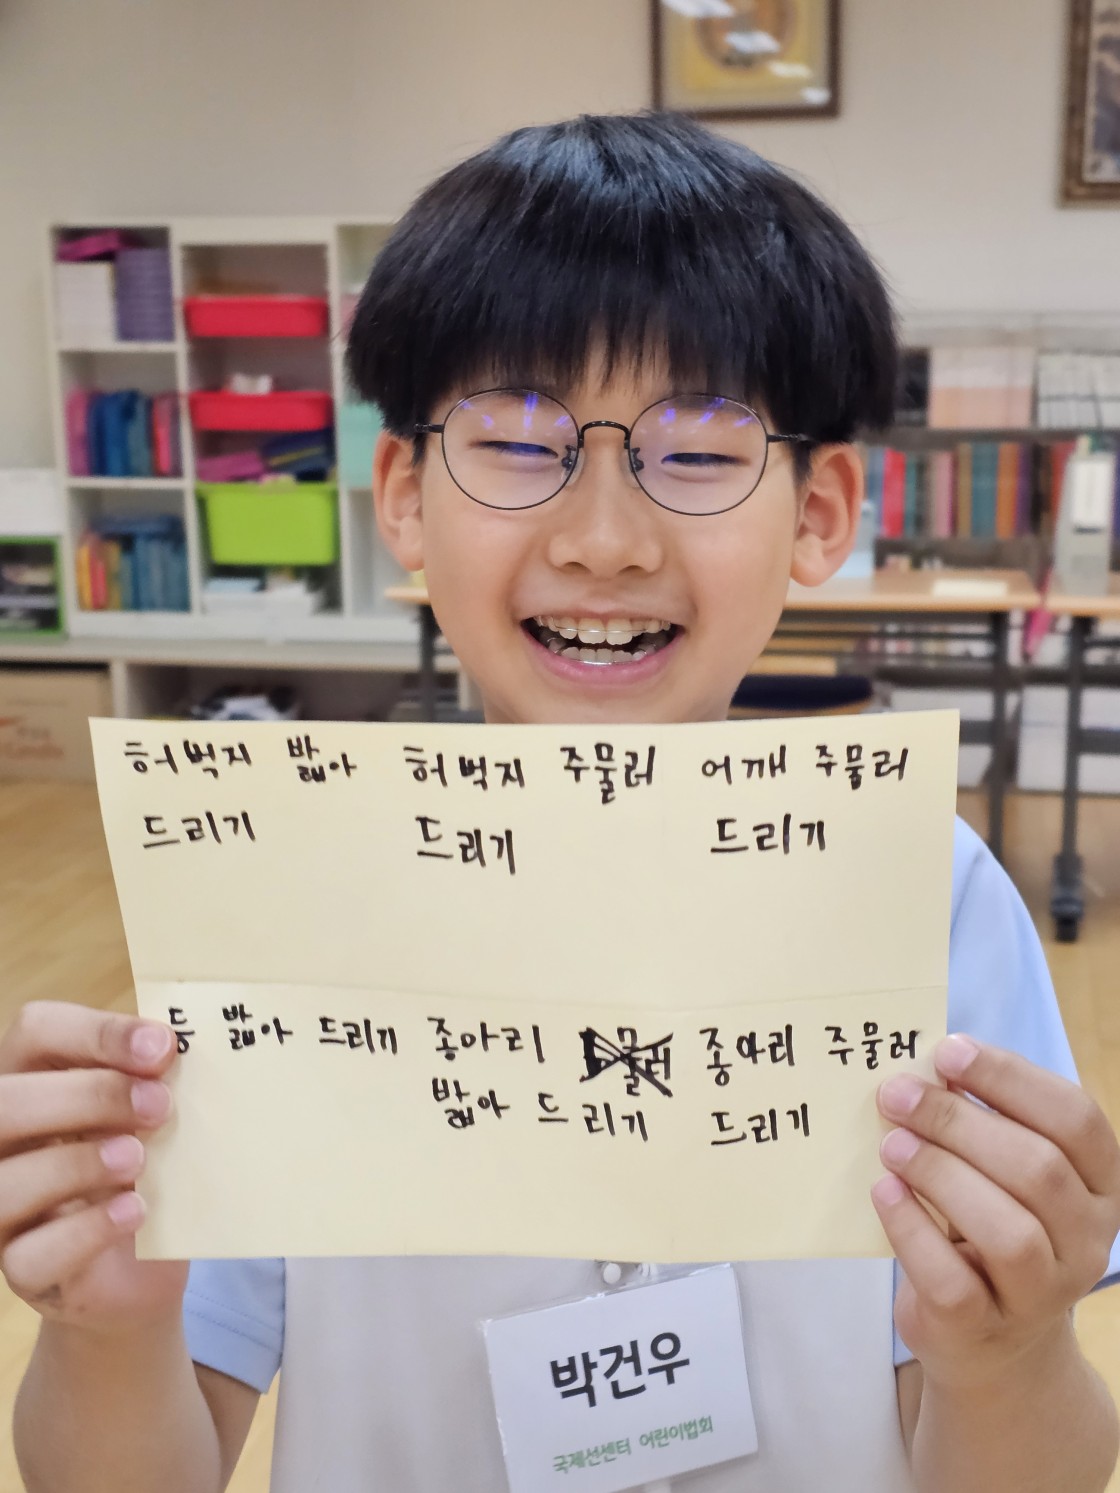 허벅지 밟아
드리기
허벅지 주물러
드리기
어깨 주물러
드리기
등 밟아 드리기
종아리
밟아 드리기
종아리 주물러
드리기
박건우
국제선센터 어린이법회